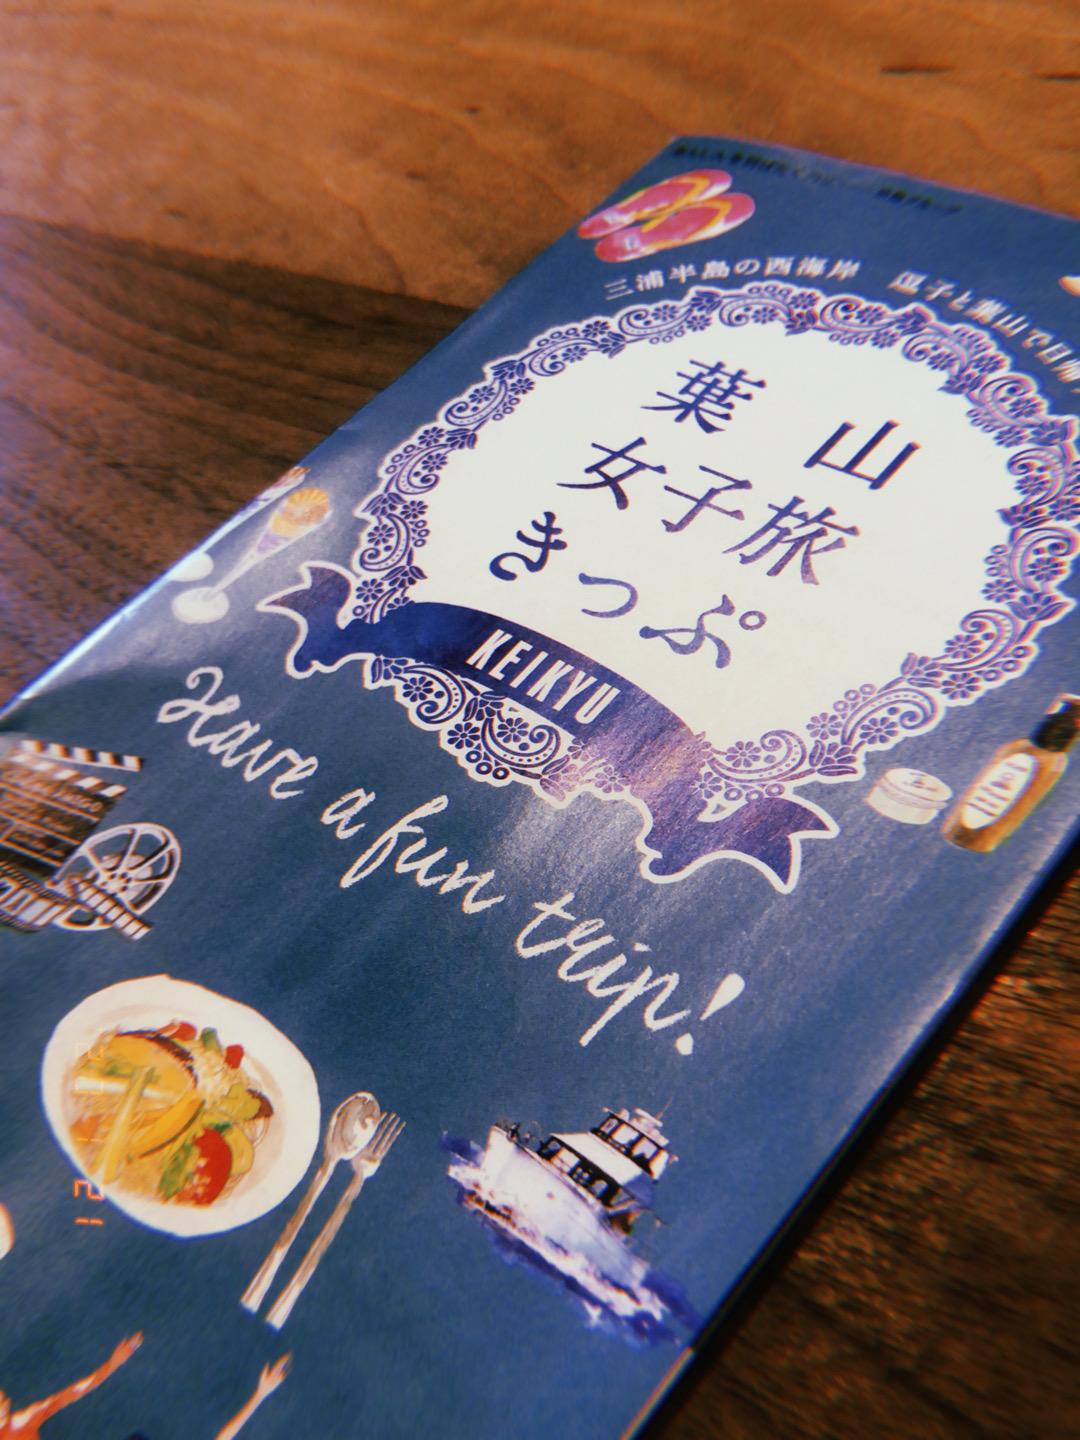 三浦半島の西海岸 逗子と葉山で日帰
葉山
女子旅
きっぷ
KEIKYU
Have a fun trip!